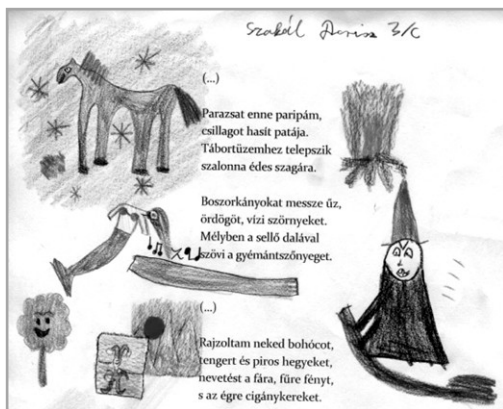 Szakál Dorisz 3/c
(...)
Parazsat enne paripám,
csillagot hasít patája.
Tábortüzemhez telepszik
szalonna édes szagára.
Boszorkányokat messze űz,
ördögöt, vízi szörnyeket.
Mélyben a sellő dalával
szövi a gyémántszőnyeget.
(...)
Rajzoltam neked bohócot,
tengert és piros hegyeket,
nevetést a fára, fűre fényt,
s az égre cigánykereket.